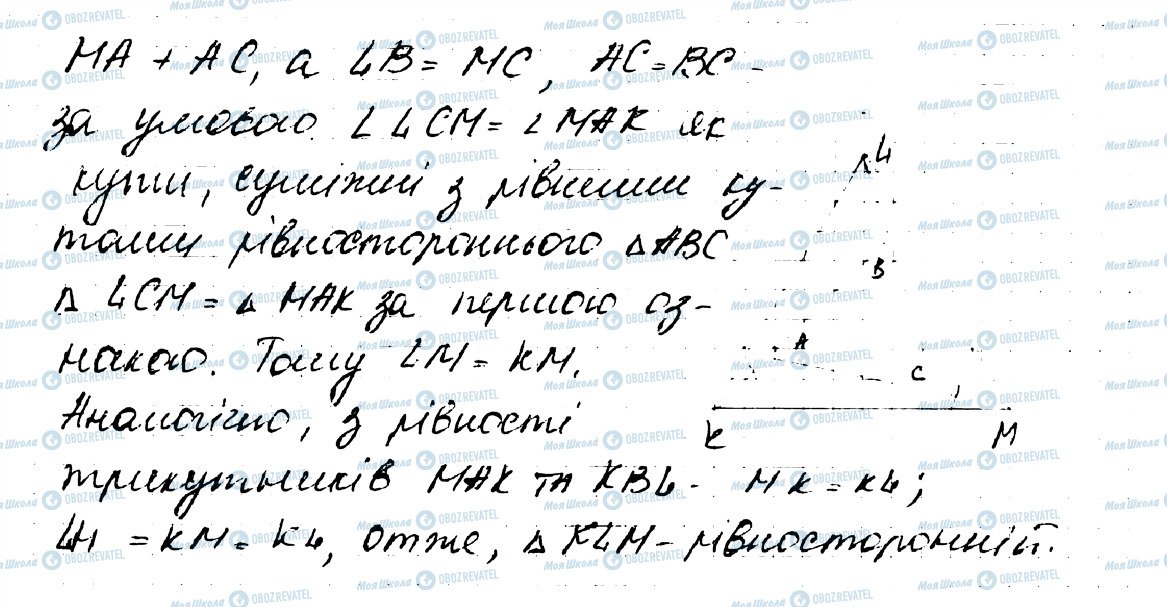 МА + АС, а LB = МС, АС = ВС -
за умовою ∠ LCM = ∠ MAK як
кути, суміжні з рівними ку-
тами рівностороннього Δ ABC
Δ LCM = Δ MAK за першою оз-
накою. Тому LM = KM.
Аналогічно, з рівності
трикутників MAK та KBL - MK = KL;
LM = KM = KL, отже, Δ KLM - рівносторонній.
L
B
A
C
K M